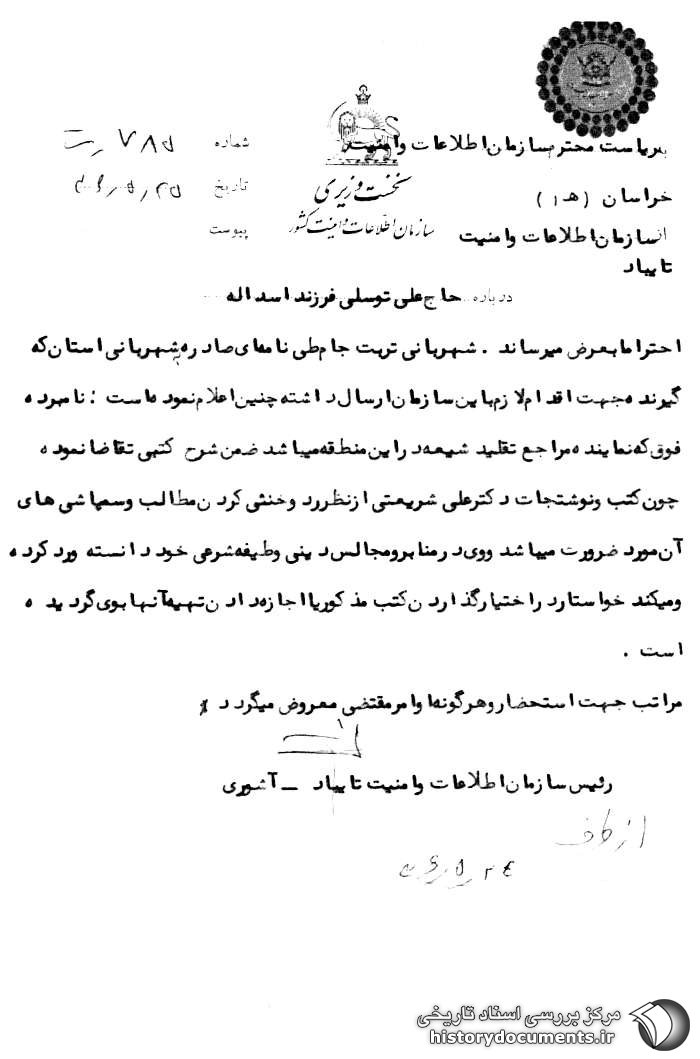 بریاست محترم سازمان اطلاعات و امنیت
خراسان (هـ ۱)
از سازمان اطلاعات و امنیت
تایباد
نخست وزیری
سازمان اطلاعات و امنیت کشور
شماره
تاریخ
پیوست
درباره حاج علی توسلی فرزند اسداله
احتراما بعرض میرساند . شهربانی تربت جام طی نامه‌ای صادره بشهربانی استان که
گیرنده جهت اقدام لازم باین سازمان ارسال داشته چنین اعلام نموده است : نامبرده
فوق که نماینده مراجع تقلید شیعه در این منطقه میباشد ضمن شرح کتبی تقاضا نموده
چون کتب و نوشتجات دکتر علی شریعتی از نظر رد و خنثی کردن مطالب و سمپاشی های
آن مورد ضرورت میباشد و وی در منابر و مجالس دینی وظیفه شرعی خود دانسته و رد کرده
و میکند خواستار در اختیار گذاردن کتب مذکور یا اجازه دادن تهیه آنها بوی گردیده
است .
مراتب جهت استحضار و هر گونه اوامر مقتضی معروض میگردد
رئیس سازمان اطلاعات و امنیت تایباد ــ آشوری
از طرف
مرکز بررسی اسناد تاریخی
historydocuments.ir